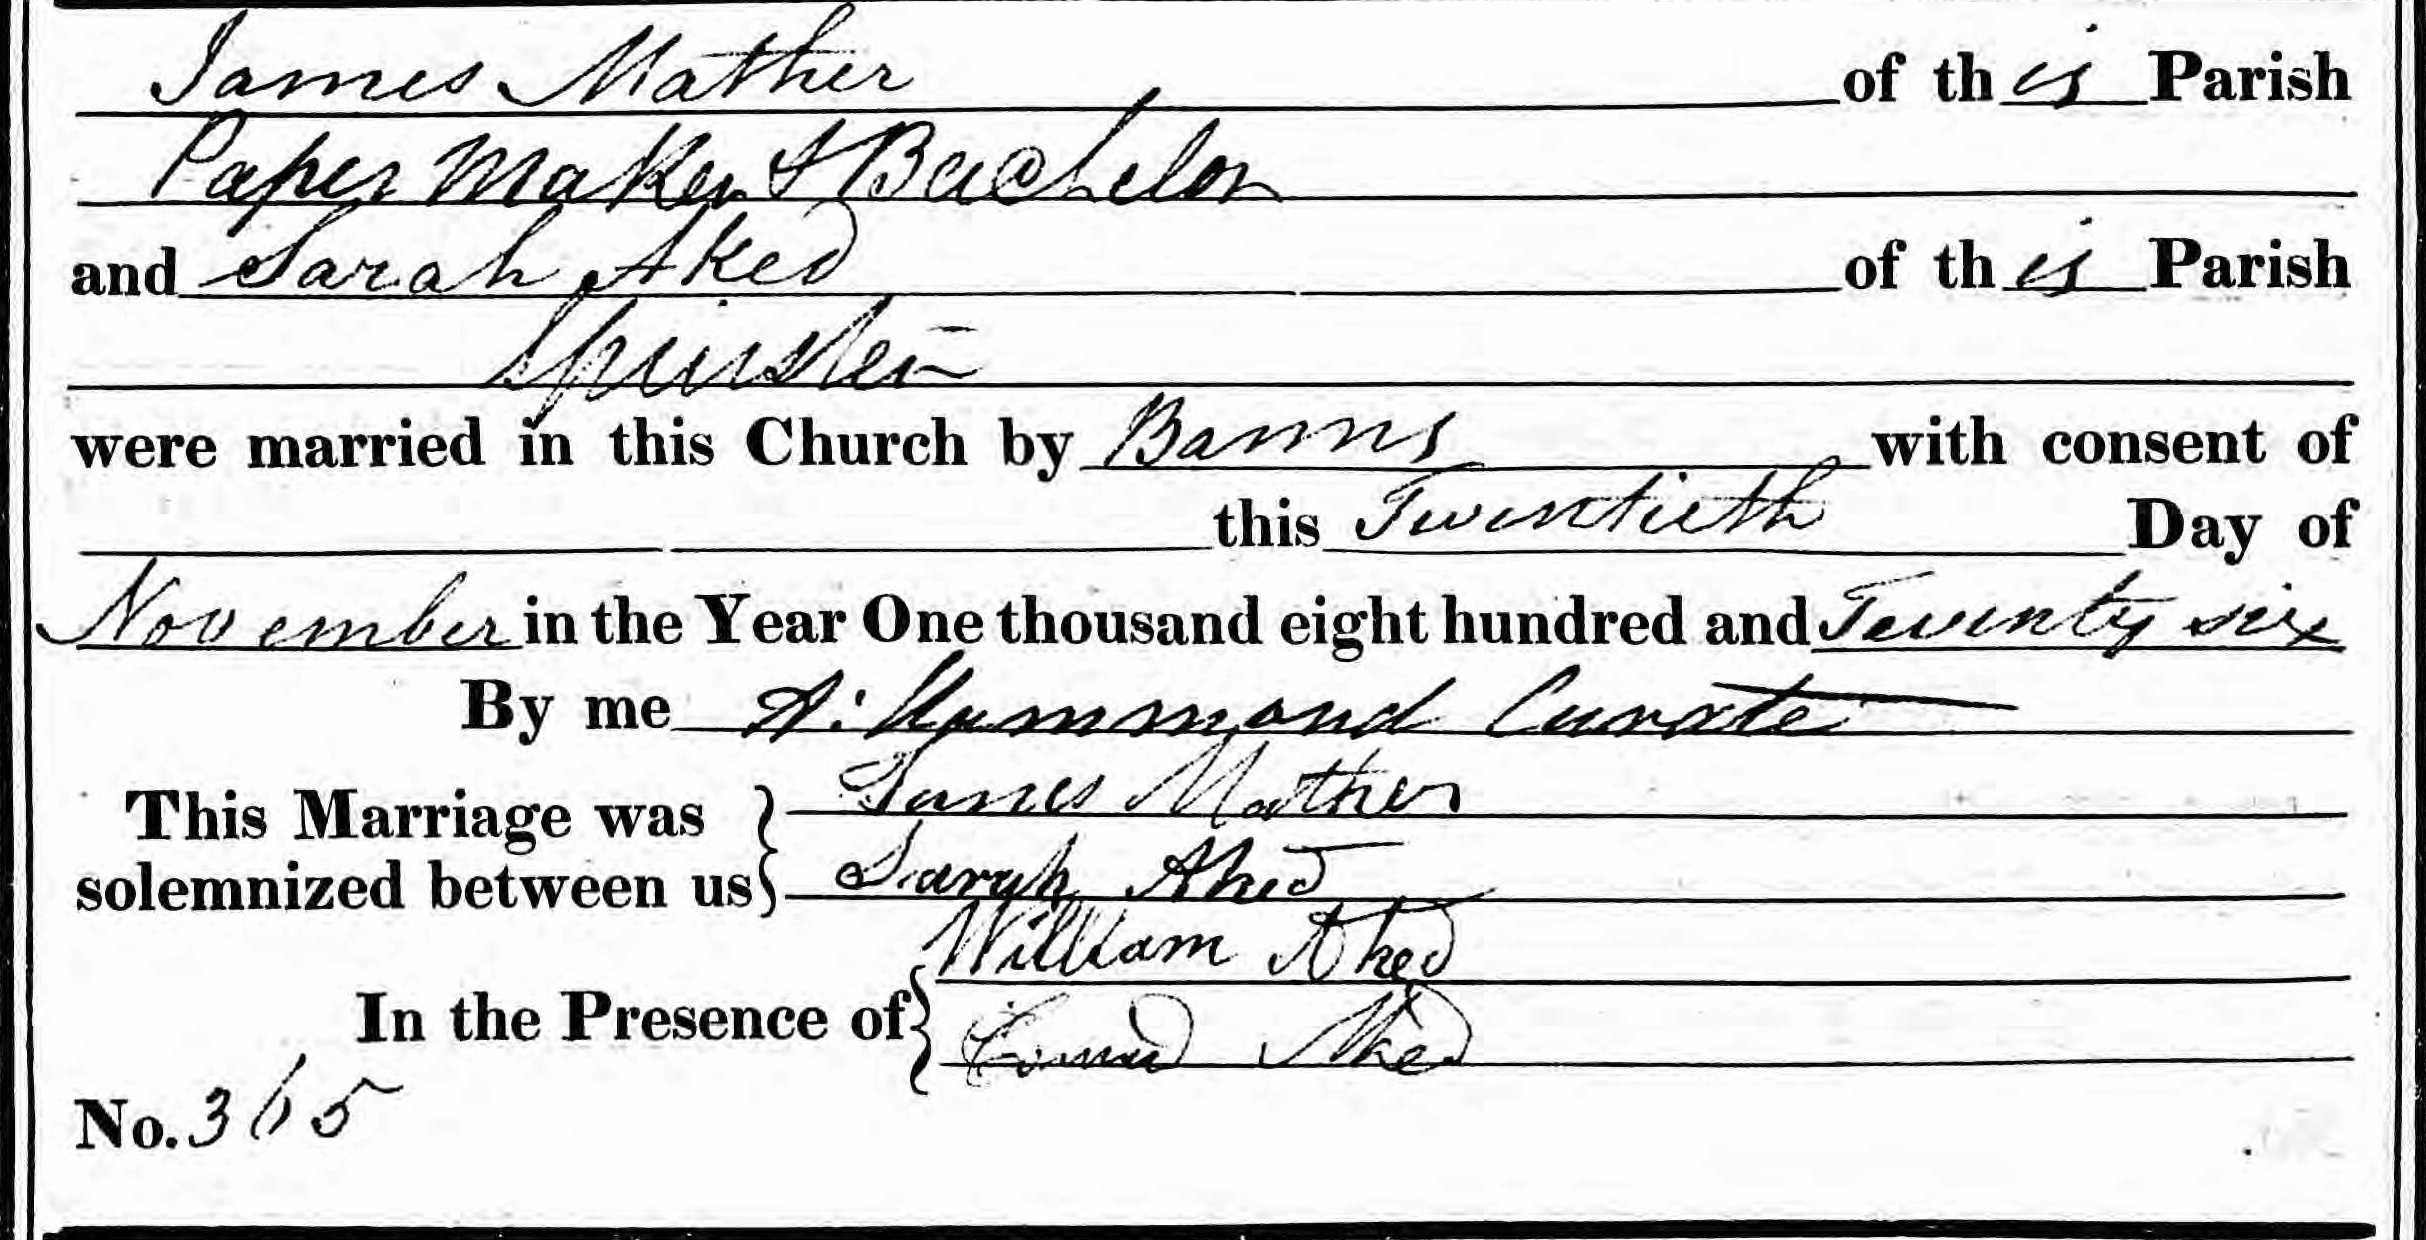 James Mather of this Parish
Paper Maker & Bachelor
and Sarah Aked of this Parish
Spinster
were married in this Church by Banns with consent of
this Twentieth Day of
November in the Year One thousand eight hundred and Twenty six
By me A: Hammond Curate
This Marriage was
solemnized between us
James Mather
Sarah Aked
In the Presence of
William Aked
Aked
No. 365